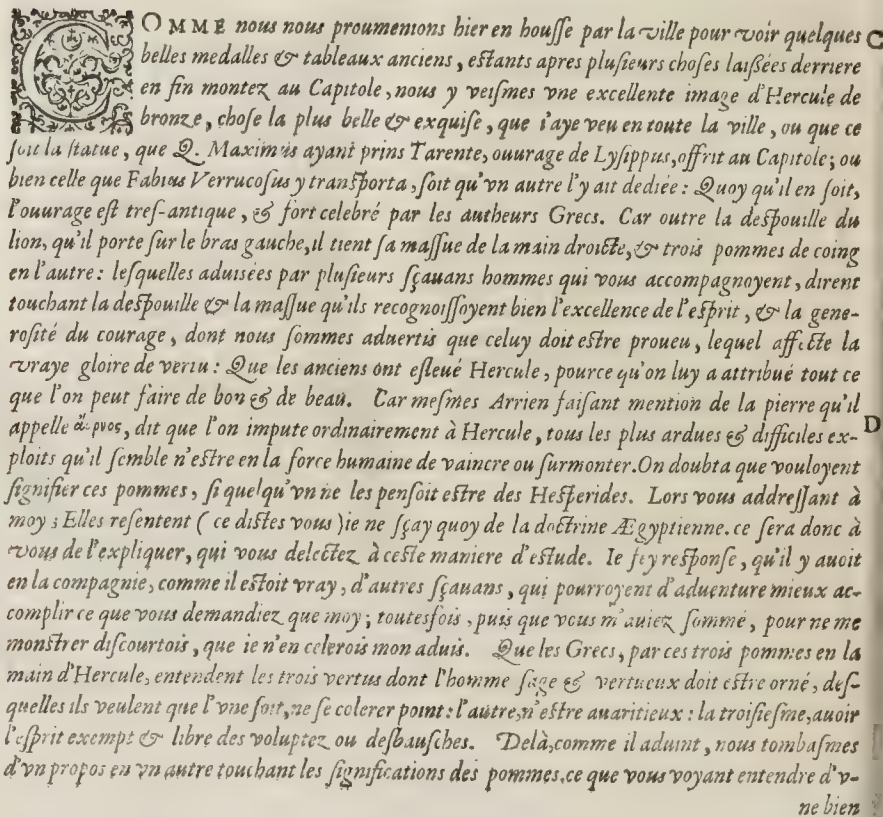 COMME nous nous proumenions hier en housse par la ville pour voir quelques C
belles medalles & tableaux anciens, estants apres plusieurs choses laißées derriere
en fin montez au Capitole, nous y veismes vne excellente image d'Hercule de
bronze, chose la plus belle & exquise, que i'aye veu en toute la ville, ou que ce
soit la statue, que Q. Maximus ayant prins Tarente, ouurage de Lysippus, offrit au Capitole; ou
bien celle que Fabius Verrucosus y transporta, soit qu'vn autre l'y ait dediée: Quoy qu'il en soit,
l'ouurage est tres-antique, & fort celebré par les autheurs Grecs. Car outre la despouille du
lion, qu'il porte sur le bras gauche, il tient sa massue de la main droicte, & trois pommes de coing
en l'autre: lesquelles aduisées par plusieurs sçauans hommes qui vous accompagnoyent, dirent
touchant la despouille & la massue qu'ils recognoissoyent bien l'excellence de l'esprit, & la gene-
rosité du courage, dont nous sommes aduertis que celuy doit estre proueu, lequel affecte la
vraye gloire de vertu: Que les anciens ont esleué Hercule, pource qu'on luy a attribué tout ce
que l'on peut faire de bon & de beau. Car mesmes Arrien faisant mention de la pierre qu'il
appelle dit que l'on impute ordinairement à Hercule, tous les plus ardues & difficiles ex- D
ploits qu'il semble n'estre en la force humaine de vaincre ou surmonter. On doubta que vouloyent
signifier ces pommes, si quelqu'vn ne les pensoit estre des Hesperides. Lors vous addressant à
moy; Elles resentent (ce distes vous) ie ne sçay quoy de la doctrine Ægyptienne. ce sera donc à
vous de l'expliquer, qui vous delectez à ceste maniere d'estude. Ie fey response, qu'il y auoit
en la compagnie, comme il estoit vray, d'autres sçauans, qui pourroyent d'aduenture mieux ac-
complir ce que vous demandiez que moy; toutesfois, puis que vous m'auiez sommé, pour ne me
monstrer discourtois, que ie n'en celerois mon aduis. Que les Grecs, par ces trois pommes en la
main d'Hercule, entendent les trois vertus dont l'homme sage & vertueux doit estre orné, des-
quelles ils veulent que l'vne soit, ne se colerer point: l'autre, n'estre auaritieux: la troisiesme, auoir
l'esprit exempt & libre des voluptez ou desbausches. Delà, comme il aduint, nous tombasmes
d'vn propos en vn autre touchant les significations des pommes, ce que vous voyant entendre d'v-
ne bien